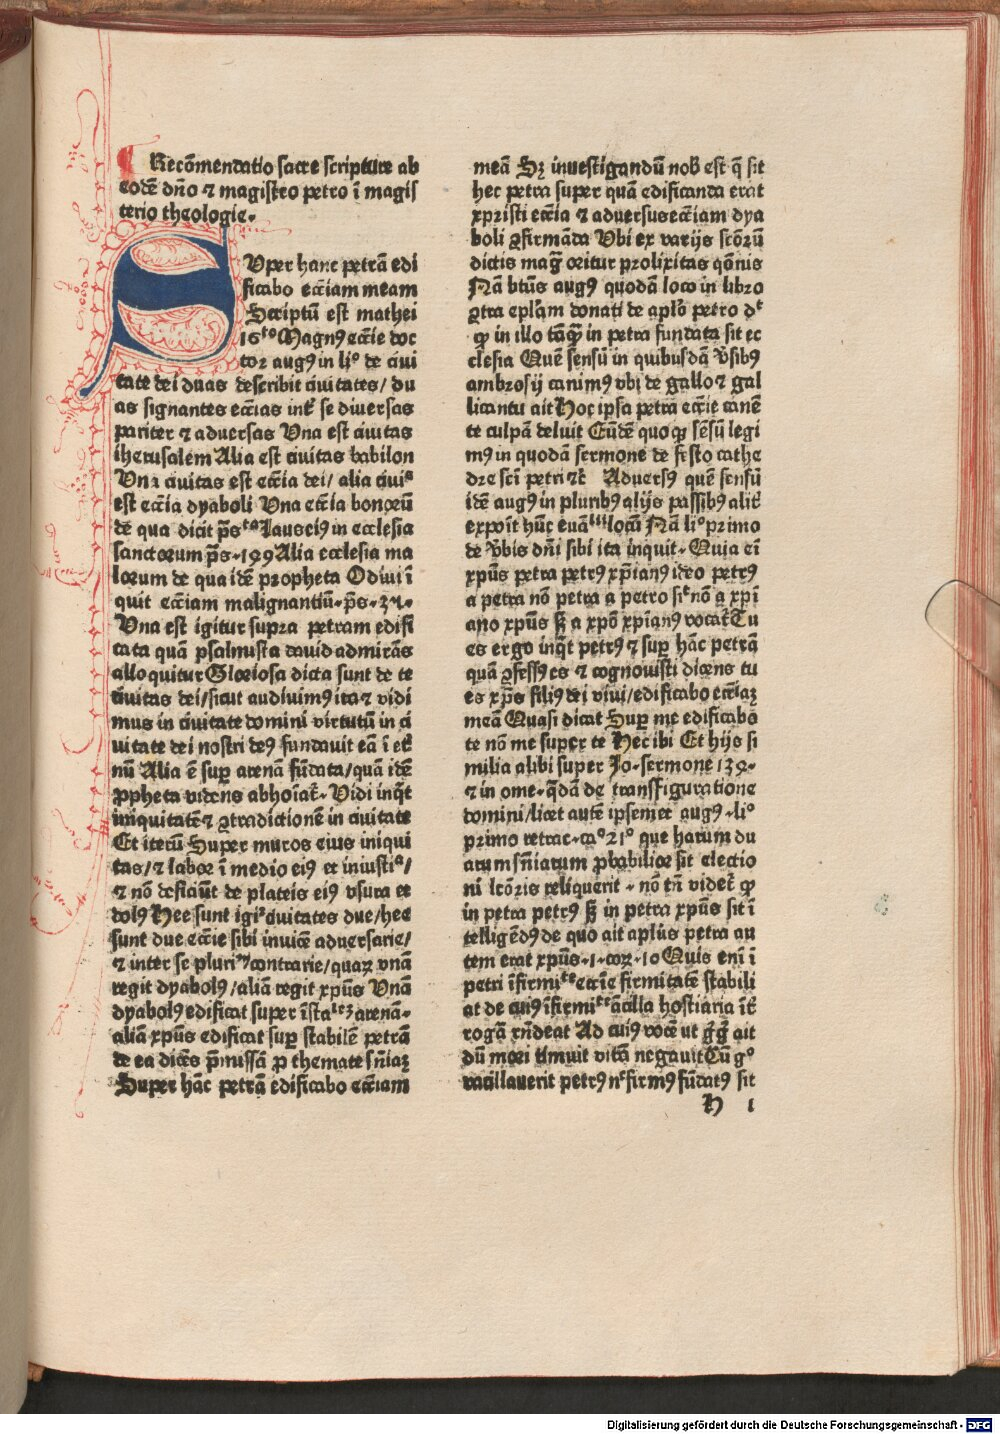 Recōmendatio sacre scripture ab
eodē dn̄o ⁊ magistro petro ī magis
terio theologie.
SUper hanc petrā edi
ficabo ecc̄iam meam
Scriptū est mathei
16ᵗᵒ Magnꝰ ecc̄ie doc
tor augꝰ in liᵒ de ciui
tate dei duas describit ciuitates/ du
as signantes ecc̄ias int̄ se diuersas
pariter ⁊ aduersas Una est ciuitas
iherusalem Alia est ciuitas babilon
Una ciuitas est ecc̄ia dei/ alia ciuiᵃ
est ecc̄ia dyaboli Una ecc̄ia bonorū
de qua dicit p̄s Lauseiꝰ in ecclesia
sanctorum p̄s. 149 Alia ecclesia ma
lorum de qua idē propheta Odiui ī
quit ecc̄iam malignantiū. p̄s.
Una est igitur supra petram edifi
cata quā psalmista dauid admirās
alloquitur Gloriosa dicta sunt de te
ciuitas dei/ sicut audiuimꝰ ita ⁊ vidi
mus in ciuitate domini virtutū in ci
uitate dei nostri deꝰ fundauit eā ī et̄
nū Alia ē suꝑ arenā fūdata/ quā idē
ꝓpheta videns abhoīat̄. Vidi inq̄t
iniquitatē ⁊ ꝯtradictionē in ciuitate
Et iterū Super muros eius iniqui
tas/ ⁊ labor ī medio eiꝰ et iniustiᵃ/
⁊ nō defiaūt de plateis eiꝰ vsura et
dolꝰ Hee sunt igiᵗ ciuitates due/ hee
sunt due ecc̄ie sibi inuicē aduersarie/
⁊ inter se contrarie/ quaꝝ vnā
regit dyabolꝰ/ aliā regit xp̄us Unā
dyabolꝰ edificat super arenā.
aliā xp̄us edificat suꝑ stabilē petrā
de ea dicēs p̄missā ꝓ themate sn̄iaꝝ
Super hāc petrā edificabo ecc̄iam
meā Sꝫ inuestigandū nob̄ est q̄ sit
hec petra super quā edificanda erat
xpristi ecc̄ia ⁊ aduersus ecc̄iam dya
boli ꝯfirmāda Ubi ex varijs sc̄orū
dictis maḡ oritur prolixitas q̄onis
Nā bt̄us augꝰ quodā loco in libro
ꝯtra epl̄am donati de apl̄o petro dᵗ
ꝙ in illo tāꝙ in petra fundata sit ec
clesia Quē sensū in quibusdā v̄sibꝰ
ambrosij canimꝰ vbi de gallo ⁊ gal
licantu ait Hoc ipsa petra ecc̄ie canē
te culpā deluit Eūdē quoqꝫ sēsū legi
mꝰ in quodā sermone de festo cathe
dre sc̄i petri ⁊c̄ Aduersꝰ quē sensū
idē augꝰ in pluribꝰ alijs passibꝰ alit̄
expoīt hūc locū Nā liᵒ primo
de v̄bis dn̄i sibi ita inquit. Quia eī
xp̄us petra petrꝰ xp̄ianꝰ ideo petrꝰ
a petra nō petra a petro siᵗ nō a xp̄i
ano xp̄us sꝫ a xp̄o xp̄ianꝰ vocat̄ Tu
es ergo inq̄t petrꝰ ⁊ suꝑ hāc petrā
quā ꝯfessꝰ es ⁊ cognouisti dicens tu
es xp̄s filiꝰ dei viui/ edificabo ecc̄iaꝫ
meā Quasi dicat Suꝑ me edificabo
te nō me super te Hec ibi Et hijs si
milia alibi super Jo. sermone 139.
⁊ in ome. q̄dā de transfiguratione
domini/ licet autē ipsemet augꝰ. liᵒ
primo retrac. caᵒ 21ᵒ que harum du
arum sn̄iarum ꝓbabilior sit electio
ni lc̄oris reliquerit. nō tn̄ videt̄ ꝙ
in petra petrꝰ sꝫ in petra xp̄us sit ī
telligēdꝰ de quo ait apl̄us petra au
tem erat xp̄us. 1. cor. 10 Quis enī ī
petri īfirmiᵗᵉ ecc̄ie firmitatē stabili
at de cuiꝰ īfirmiᵗᵉ ācilla hostiaria īt̄
rogā rn̄deat Ad cuiꝰ vocē ut ait
dū mori timuit vitā negauit Cū gᵒ
vacillauerit petrꝰ firmꝰ fūdatꝰ sit
H 1
Digitalisierung gefördert durch die Deutsche Forschungsgemeinschaft - DFG